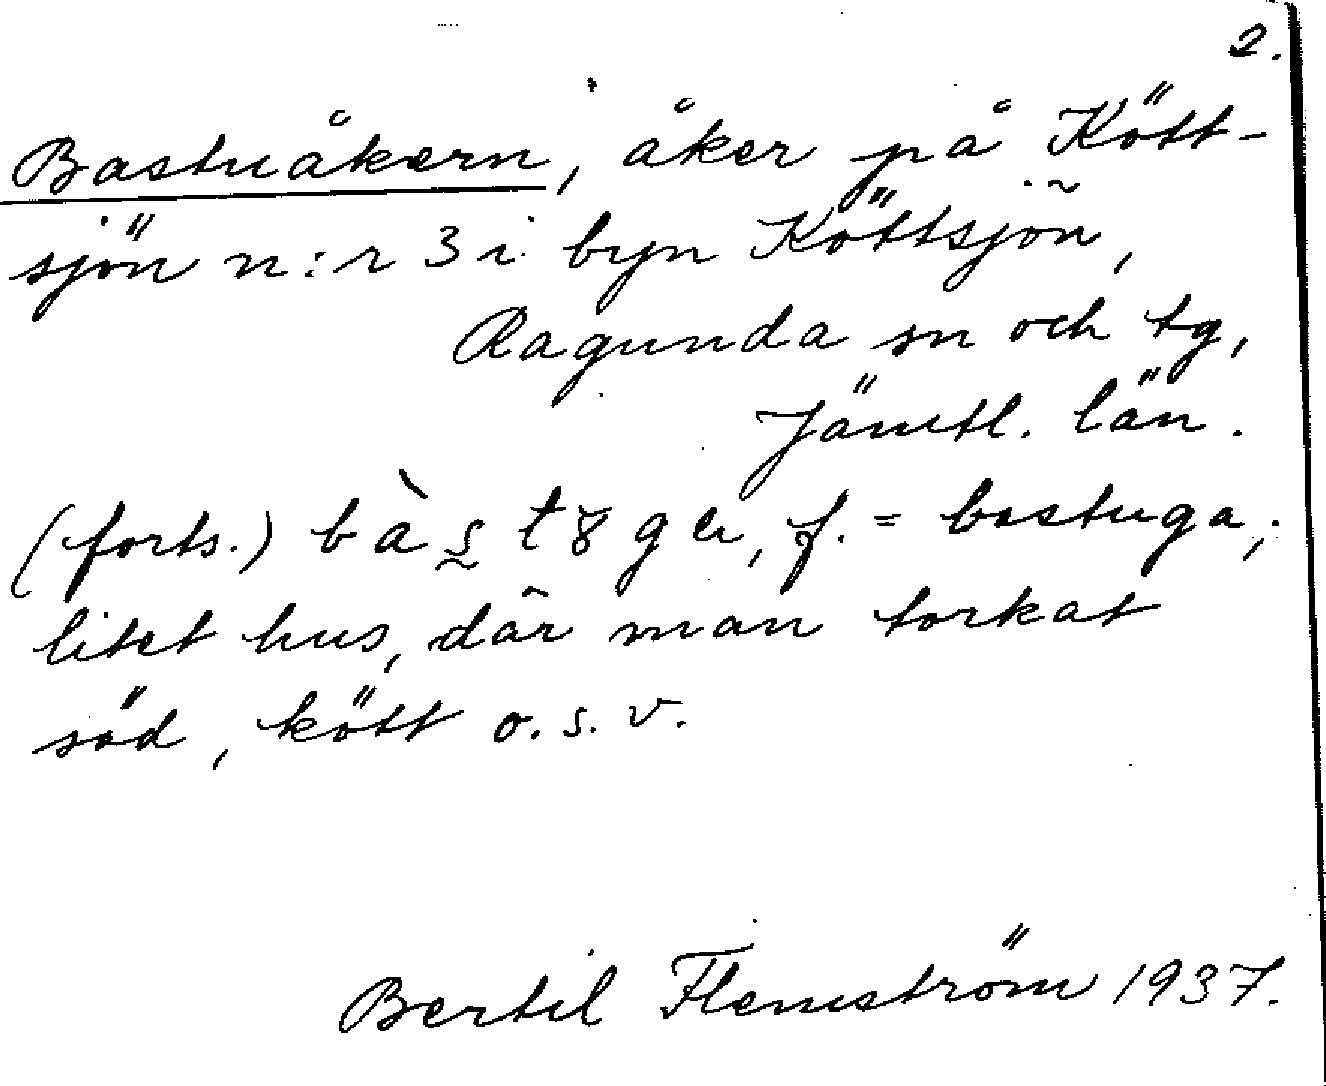 2.
Bastuåkern, åker på Kött-
sjön n:r 3 i byn Köttsjön,
Ragunda sn och tg,
Jämtl. län.
(forts.) f. = bastuga;
litet hus, där man torkat
säd, kött o.s.v.
Bertil Flemström 1937.